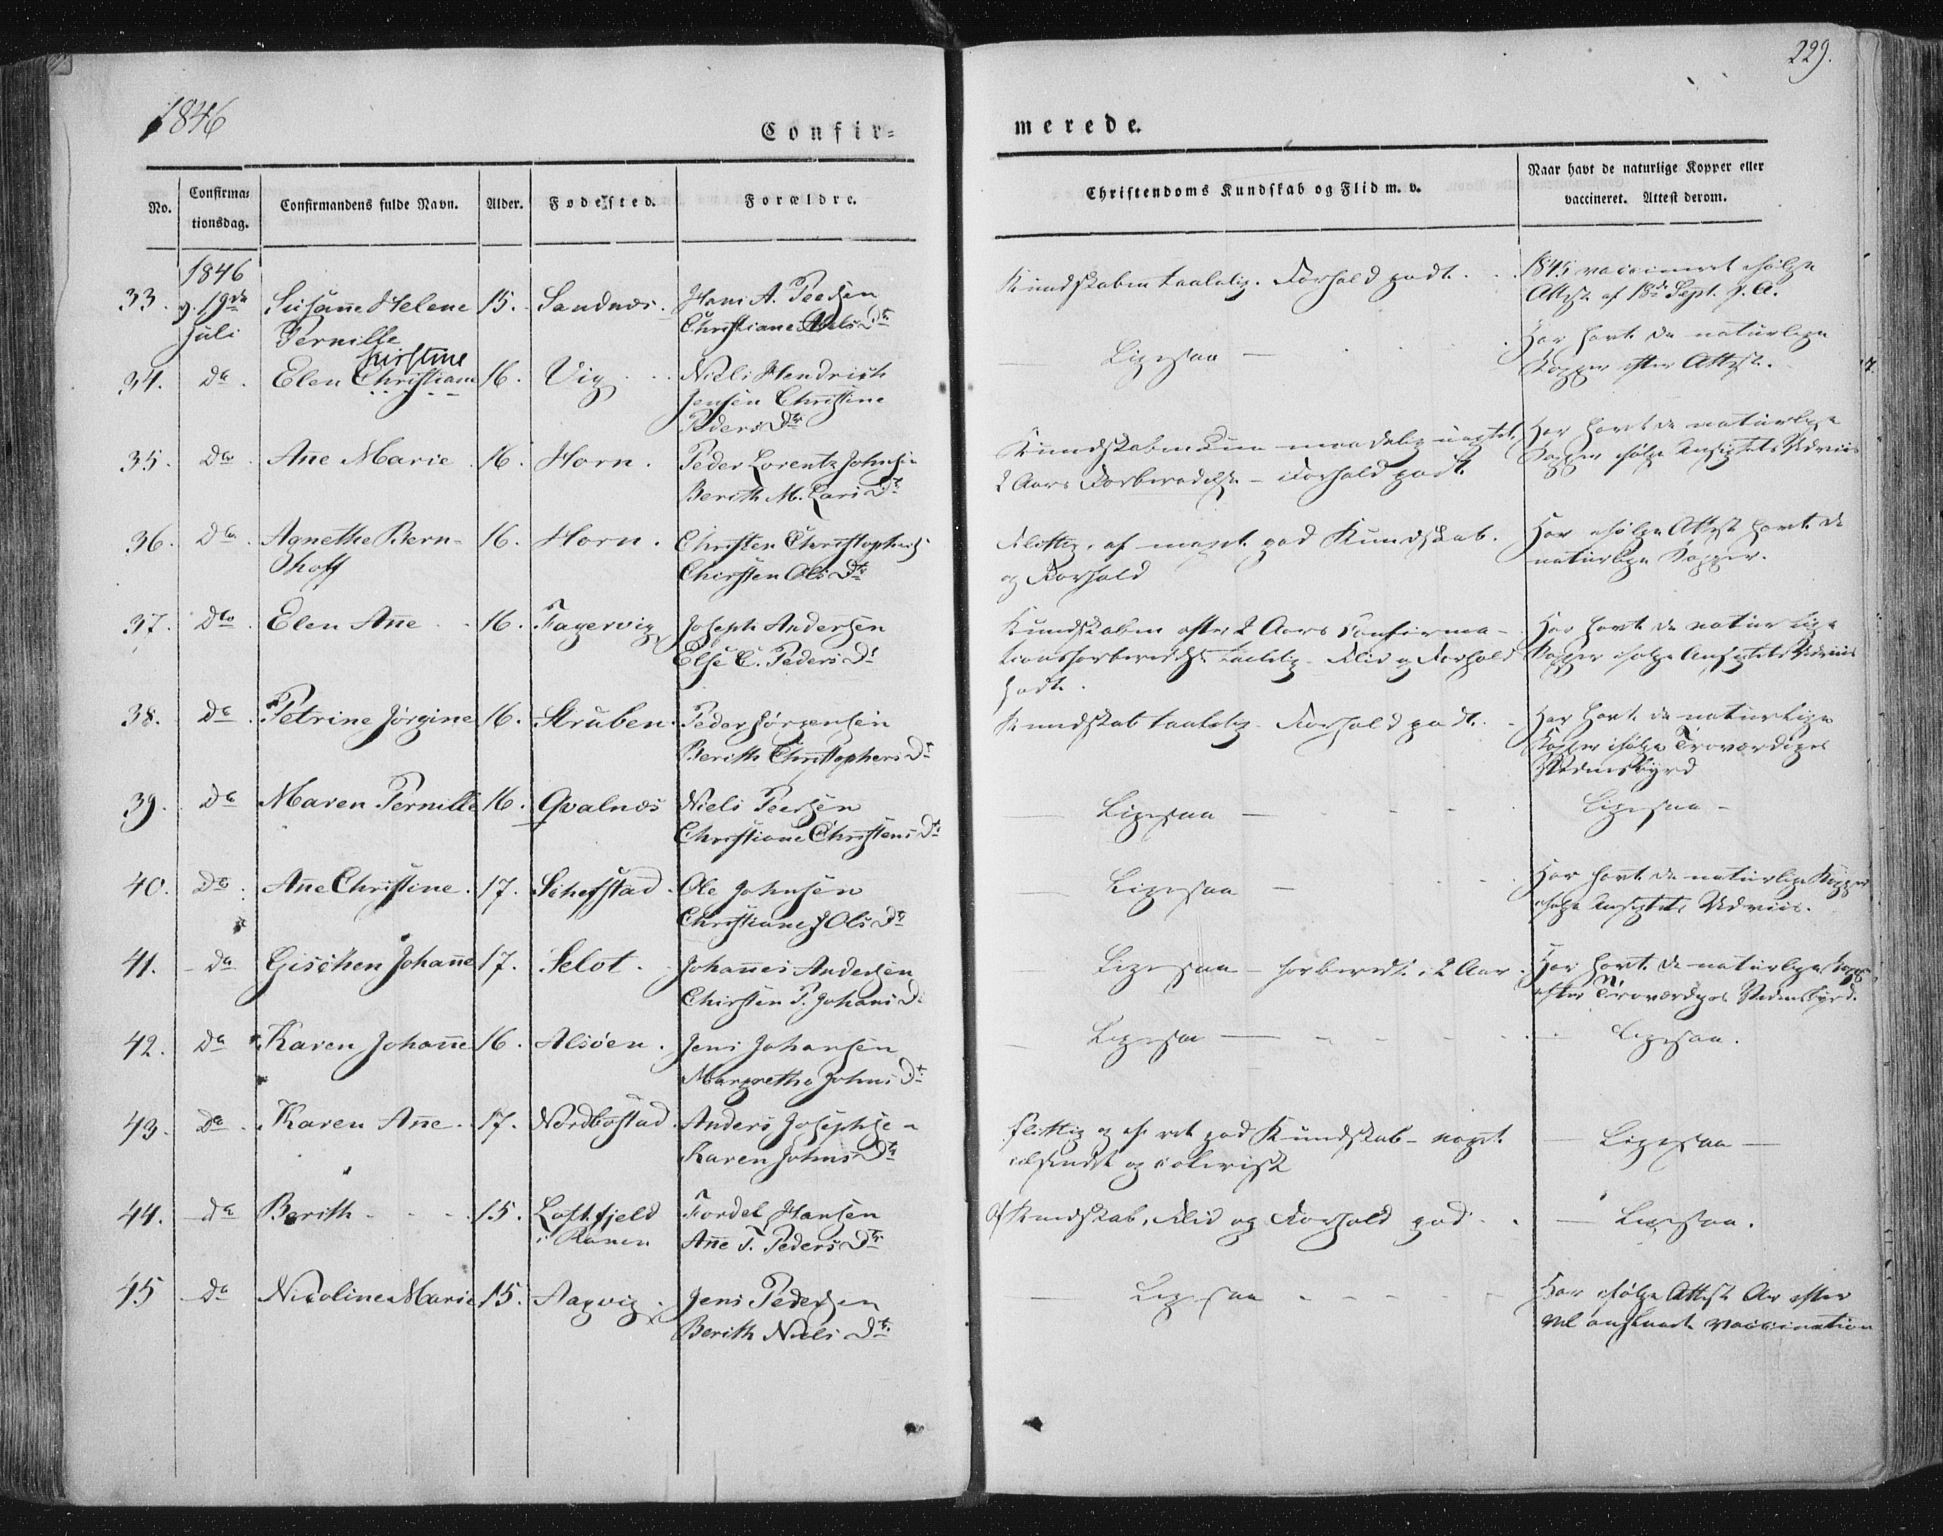 229.
1846
Confir=
merede.
No. Confirma= tionsdag. Confirmandens fulde Navn. Alder. Fødested. Forældre. Christendoms Kundskab og Flid m. v. Naar havt de naturlige Kopper eller vaccineret. Attest derom.
1846
33. 19de Juli Susanne Helene Pernille 15. Sandnæs. Hans A. Peersen Christiane Niels Dr Kundskaben taalelig. Forhold godt. 1845 vaccineret ifølge Attest af 18de Sept. s. A.
34. Do Elen Christiane Chirstine 16. Vig Niels Hendrich Jensen Christine Peders Dr Ligesaa Har havt de naturlige Kopper efter Attest.
35. Do Ane Marie 16. Horn. Peder Lorentz Johnsen Berith M. Lars Dr Kundskaben kun maadelig uagtet 2 Aars Forberedelse - Forhold godt Har havt de naturlige Kopper ifølge Ansigtets Udviis
36. Do Agnethe Bern- hoff 16. Horn. Christen Christophers Chirsten Ols Dr Flittig, af meget god Kundskab og Forhold Har ifølge Attest havt de naturlige Kopper.
37. Dto Elen Ane 16. Fagervig Joseph Andersen Else C. Peders Dr Kundskaben efter 2 Aars Confirma- tionsforberedelse taalelig - Flid og Forhold godt. Har havt de naturlige Kopper ifølge Ansigtets Udviis
38. Do Petrine Jørgine 16. Struben. Peder Jørgensen Berith Christophers Dr Kundskab taalelig. Forhold godt. Har havt de naturlige Kopper ifølge Troværdiges Vidnesbyrd
39. Do Maren Pernille 16. Qvalnæs Niels Peersen Christiane Christens Dr Ligesaa Ligesaa -
40. Do Ane Christine. 17. Ole Johnsen Christiane Ols Dr Ligesaa Har havt de naturlige Kopper ifølge Ansigtets Udviis.
41. Do Gischen Johane 17. Selot. Johanes Andersen Chirsten P. Johans Dr Ligesaa - forberedt i 2 Aar. Har havt de naturlige Kopper efter Troværdiges Vidnesbyrd.
42. Do Karen Johane 16. Alsöen. Jens Johansen Margrethe Johns Dr Ligesaa Ligesaa.
43. Do Karen Ane. 17. Nordbostad. Anders Josephse- Karen Johns Dr flittig og af ret god Kundskab - noget og colerisk Ligesaa -
44. Do Berith 15. Loftfjeld i Ranen Tordel Hansen Ane T. Peders Dr Af Kundskab, Flid og Forhold god Ligesaa.
45 Do Nicoline Marie 15. Aagvig. Jens Pedersen Berith Niels Dr Ligesaa Har ifølge Attest Ar efter vel anslaaet Vaccination